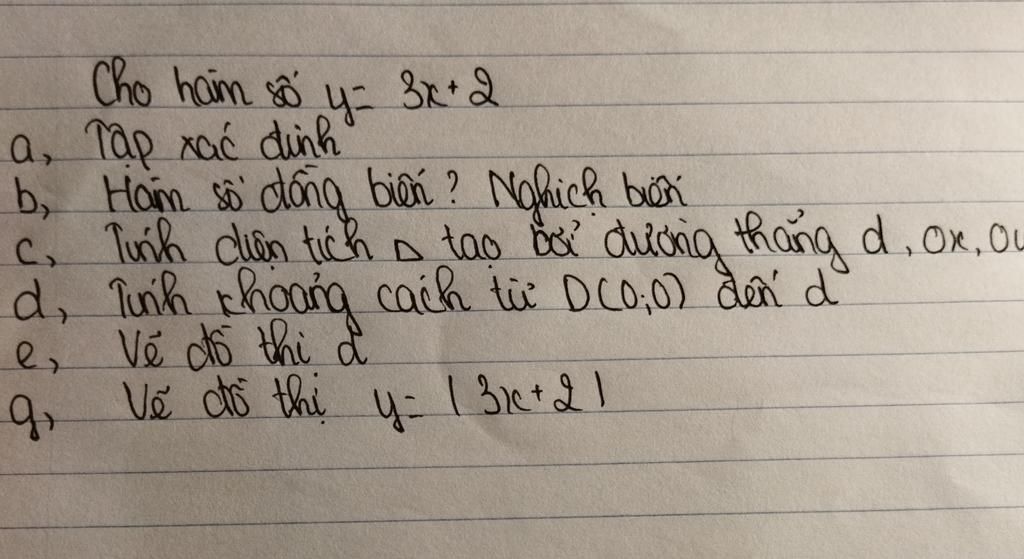 Cho hàm số y = 3x + 2
a, Tập xác định
b, Hàm số đồng biến? Nghịch biến
c, Tính diện tích Δ tạo bởi đường thẳng d, Ox, Oy
d, Tính khoảng cách từ O(0;0) đến d
e, Vẽ đồ thị d
g, Vẽ đồ thị y = |3x + 2|